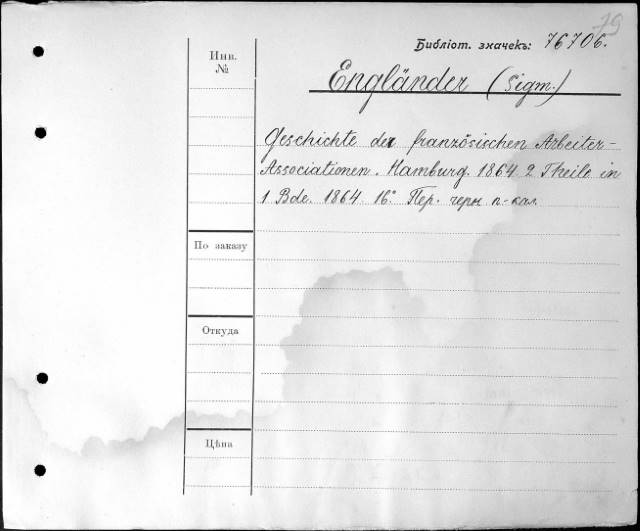 79
Библіот. значекъ: 76706.
Инв.
№
Engländer (Sigm.)
Geschichte der französischen Arbeiter-
Associationen. Hamburg. 1864. 2 Theile in
1 Bde. 1864 16° Пер. черн п-кал.
По заказу
Откуда
Цѣна